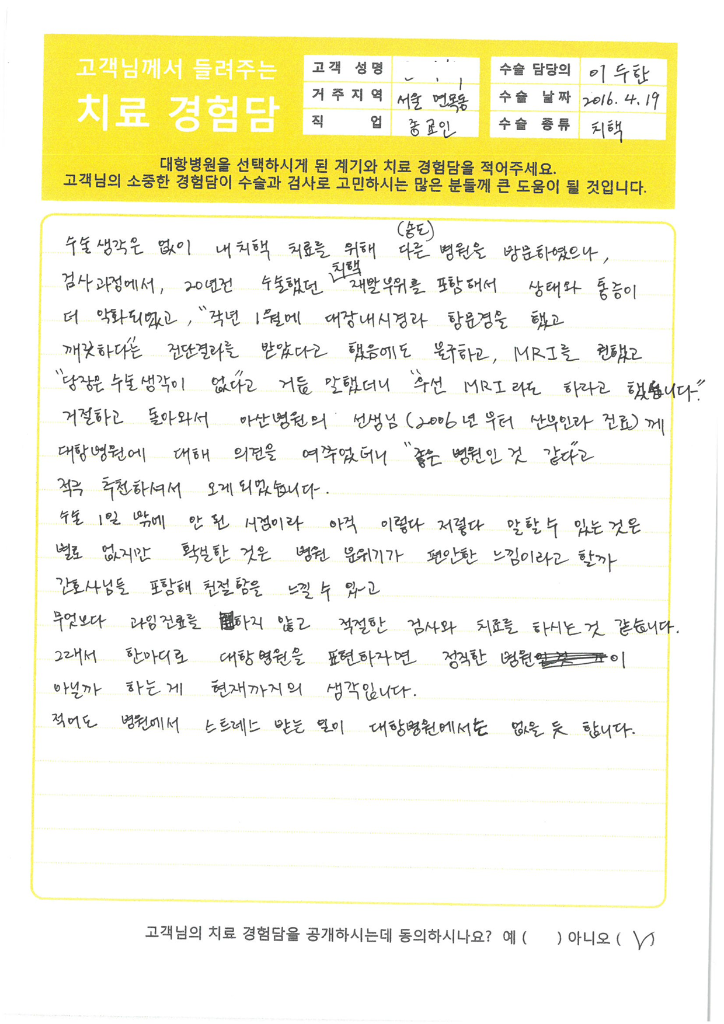 고객님께서 들려주는
치료 경험담
고객 성명
거주지역 서울 면목동
직 업 종교인
수술 담당의 이두한
수술 날짜 2016. 4. 19
수술 종류 치핵
대항병원을 선택하시게 된 계기와 치료 경험담을 적어주세요.
고객님의 소중한 경험담이 수술과 검사로 고민하시는 많은 분들께 큰 도움이 될 것입니다.
(송도)
수술생각은 없이 내치핵 치료를 위해 다른 병원을 방문하였으나,
치핵
검사과정에서, 20년전 수술했던 재발부위를 포함해서 상태와 통증이
더 악화되었고, "작년 1월에 대장내시경과 항문경을 했고
깨끗하다"는 진단결과를 받았다고 했음에도 불구하고, MRI를 권했고
"당장은 수술생각이 없다"고 거듭 말했더니 "우선 MRI라도 하라고 했습니다."
거절하고 돌아와서 아산병원의 선생님(2006년부터 산부인과 진료)께
대항병원에 대해 의견을 여쭈었더니 "좋은 병원인 것 같다"고
적극 추천하셔서 오게되었습니다.
수술 1일 밖에 안 된 시점이라 아직 이렇다 저렇다 말할 수 있는 것은
별로 없지만 확실한 것은 병원 분위기가 편안한 느낌이라고 할까
간호사님들 포함해 친절함을 느낄 수 있고
무엇보다 과잉진료를 하지 않고 적절한 검사와 치료를 하시는 것 같습니다.
그래서 한마디로 대항병원을 표현하자면 정직한 병원이
아닐까 하는게 현재까지의 생각입니다.
적어도 병원에서 스트레스 받는 일이 대항병원에서는 없을 듯 합니다.
고객님의 치료 경험담을 공개하시는데 동의하시나요? 예 ( ) 아니오 ( V )